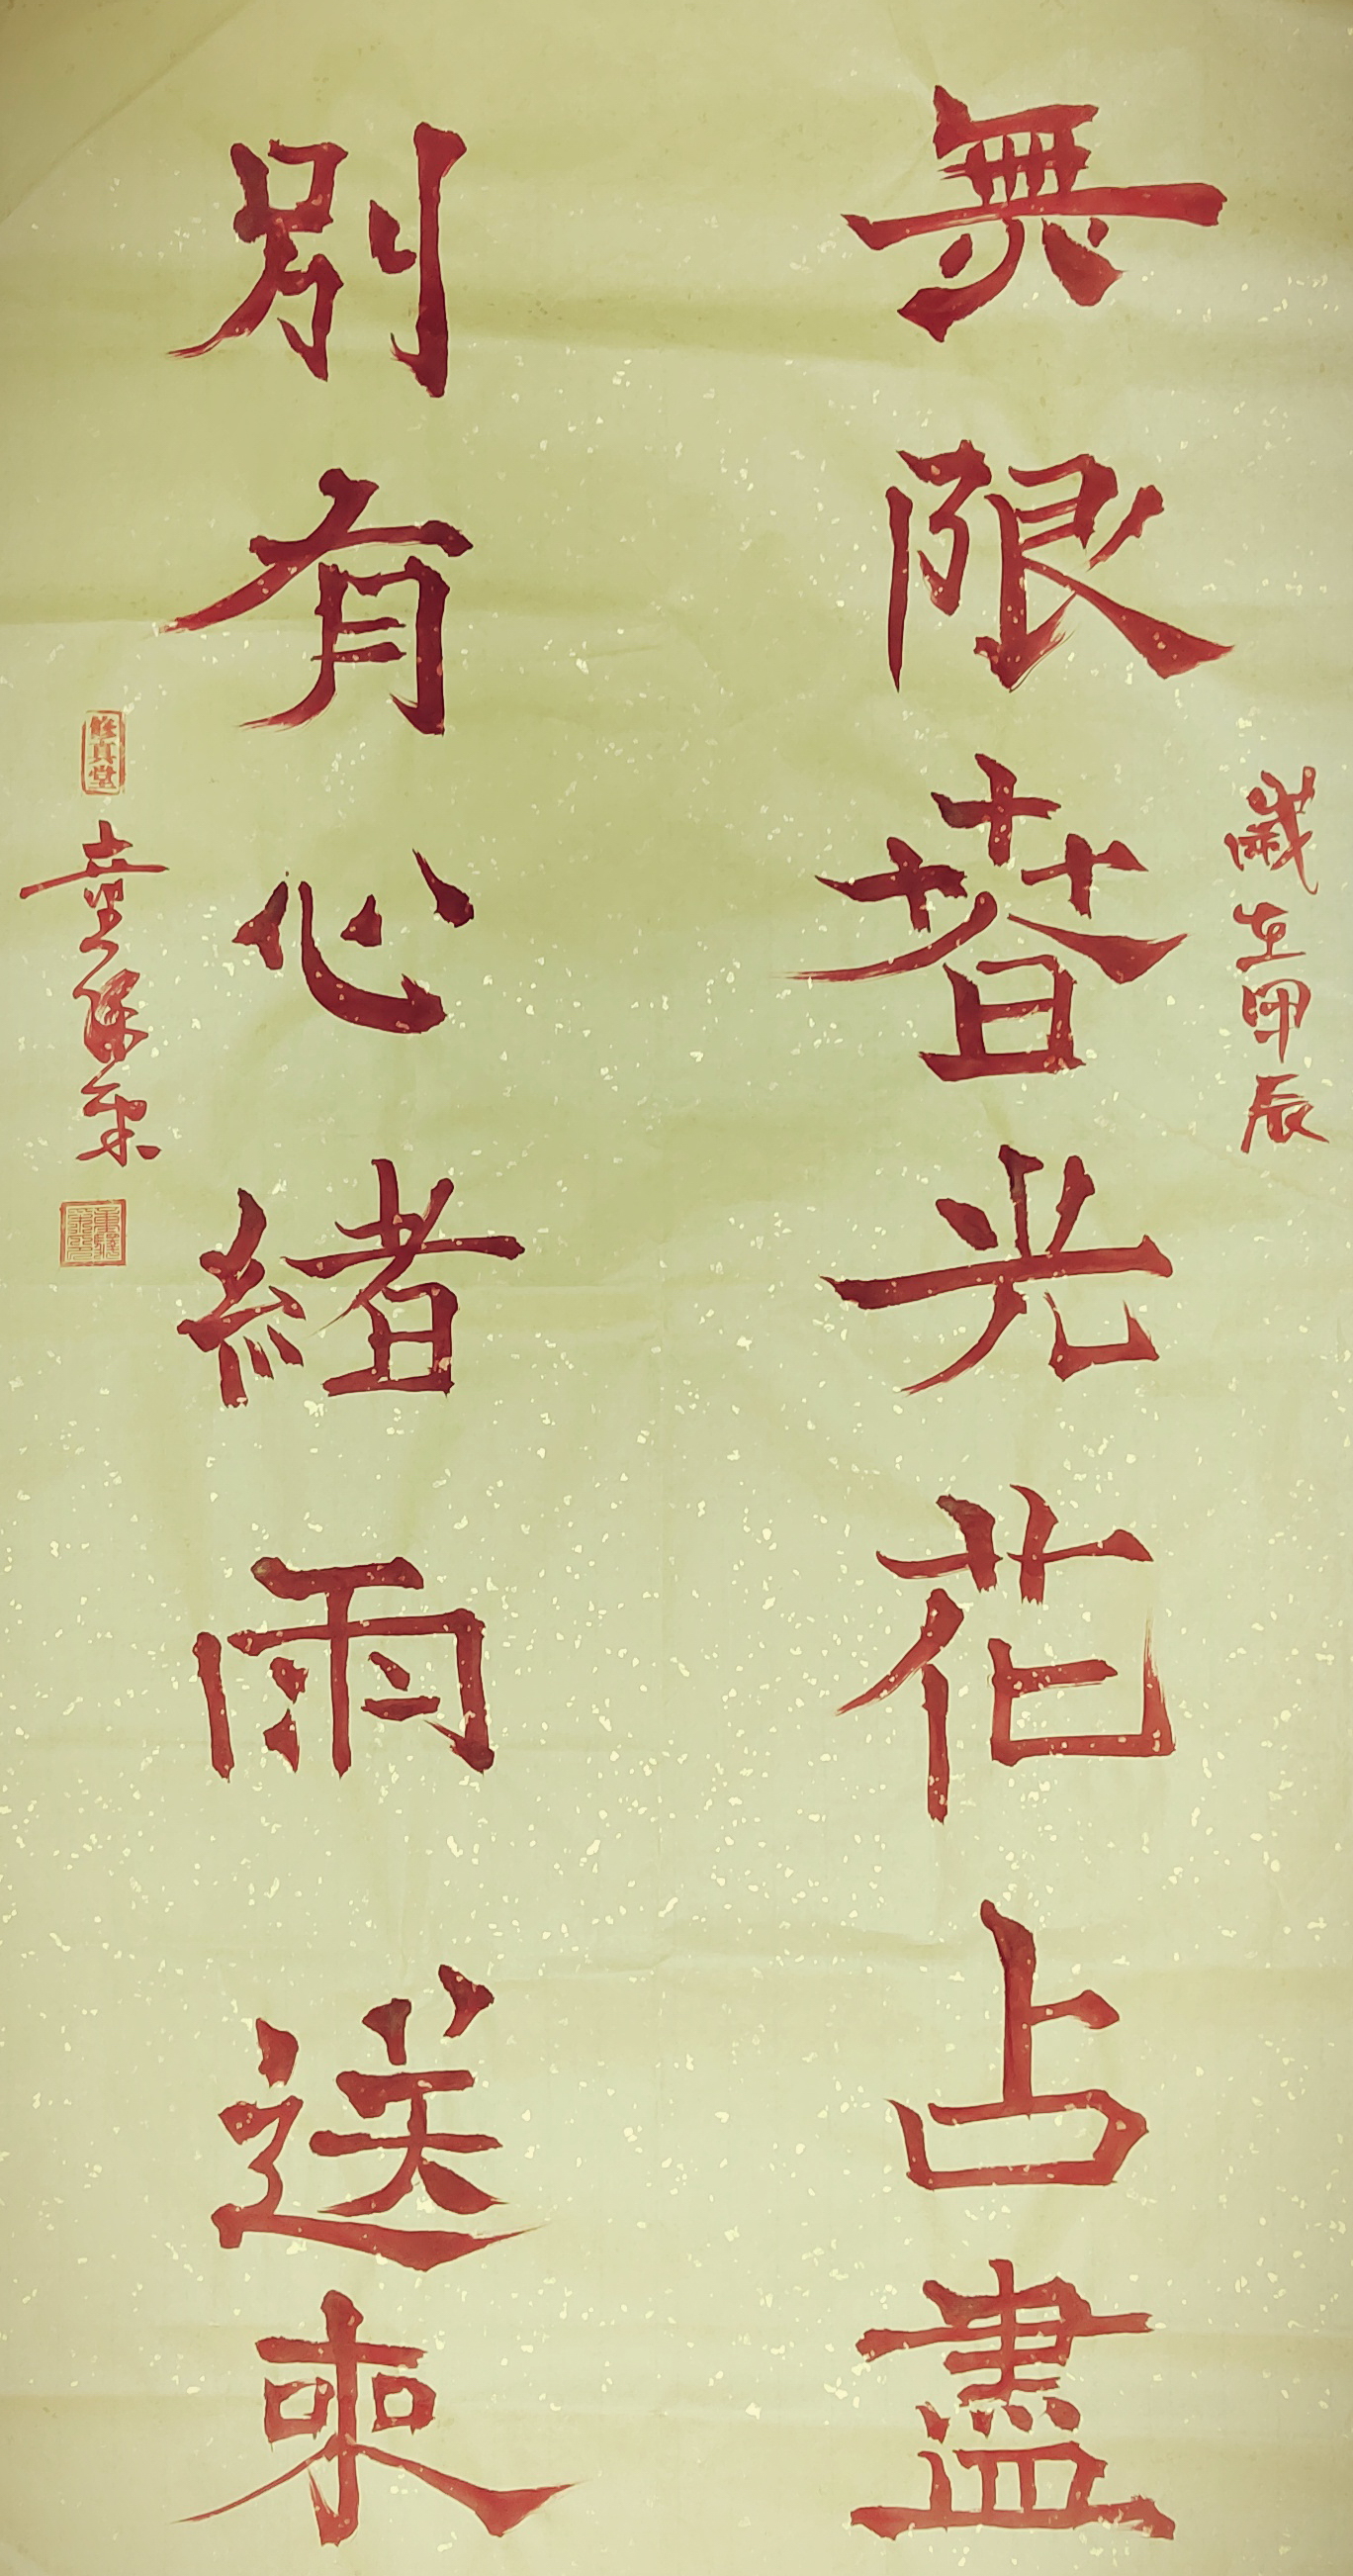 歲在甲辰
無限春光花占盡
別有心緒雨送來
修真堂
童